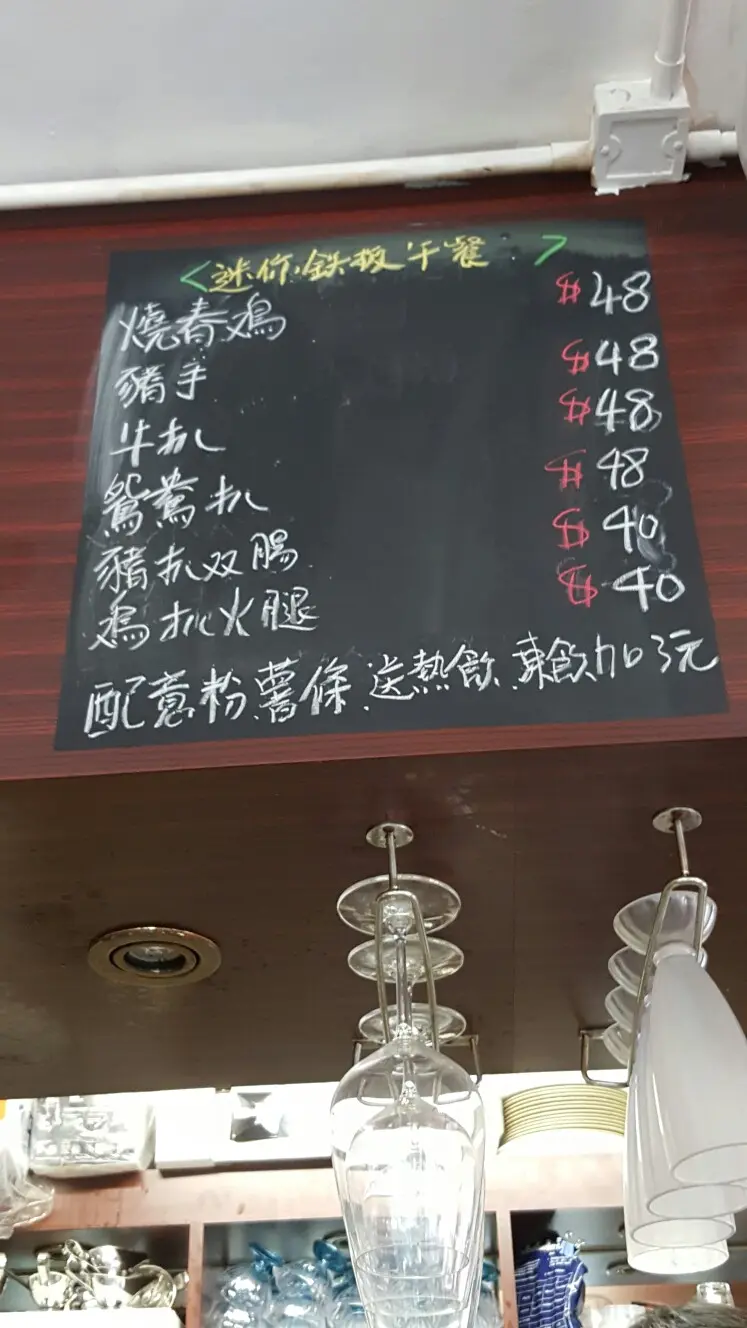 <迷你鉄板午餐>
燒春鸡 $48
豬手 $48
牛扒 $48
鴛鴦扒 $48
豬扒双腸 $40
鸡扒火腿 $40
配意粉.薯條.送熱飲.凍飲加3元